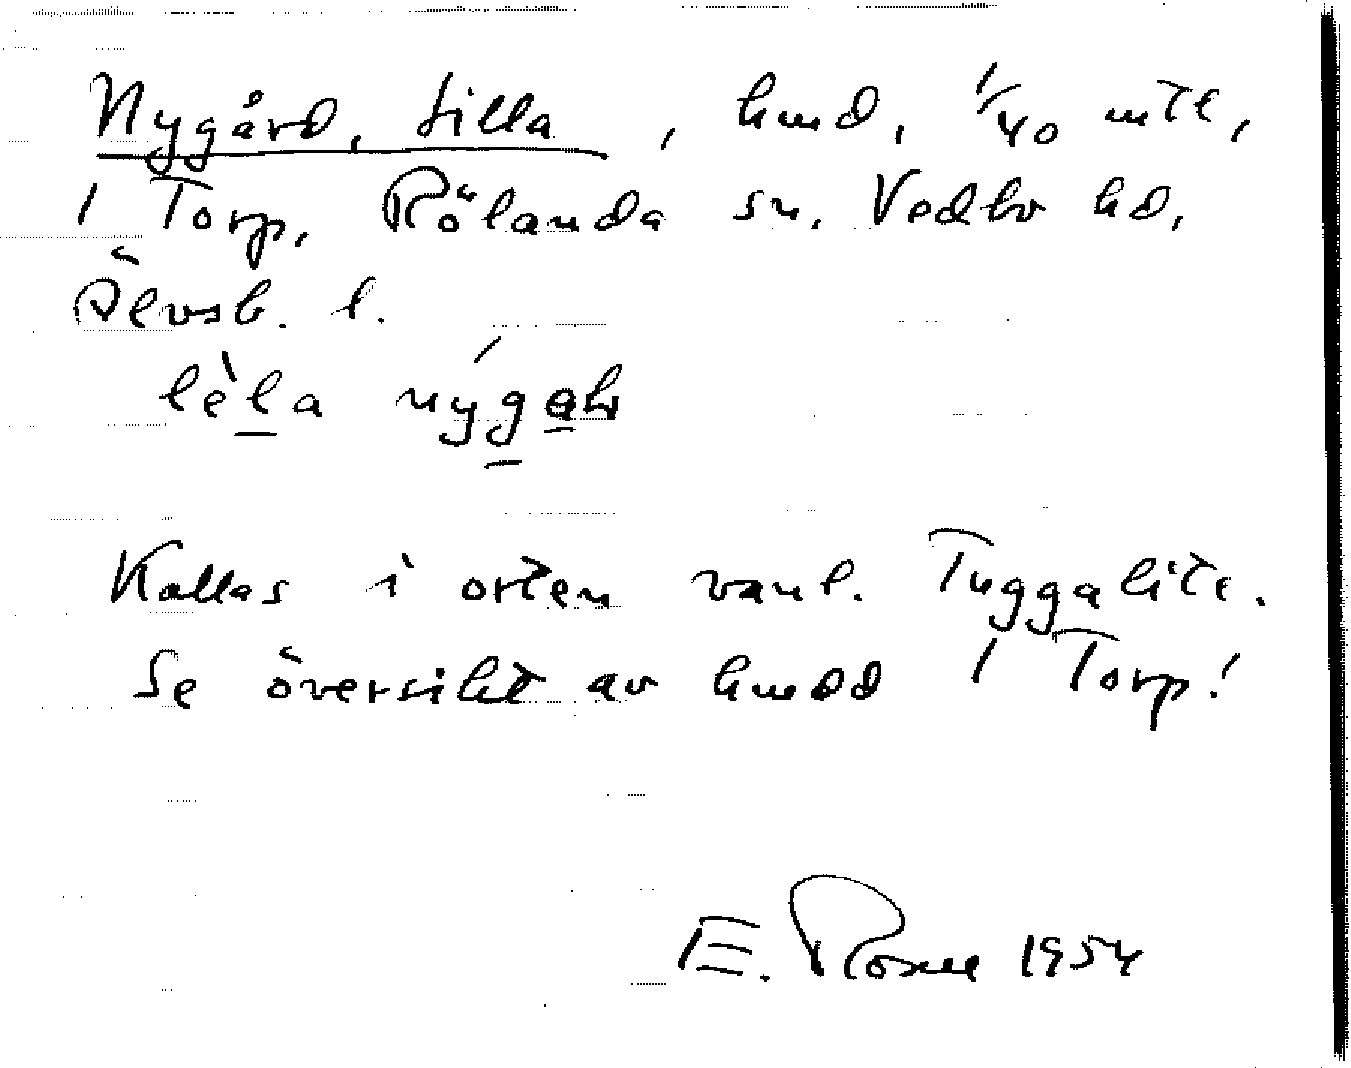 Nygård, Lilla, hmd, 1/40 mtl,
1 Torp, Rölanda sn, Vedbo hd,
Älvsb. l.
lèla nýgaḷ
Kallas i orten vanl. Tuggalite.
Se översikt av hmdd 1 Torp!
E. Rosell 1954